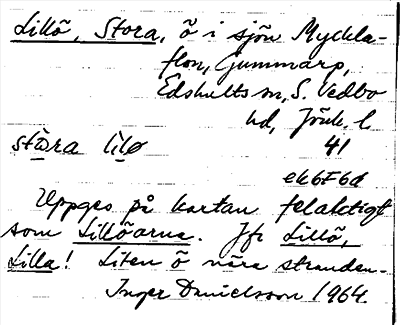 Lillö, Stora, ö i sjön Myckla-
flon, Gummarp,
Edshults sn, S. Vedbo
hd, Jönk. l.
stɷra lilø 41
ek6F6d
Uppges på kartan felaktigt
som Lillöarna. Jfr Lillö,
Lilla! Liten ö nära stranden.-
Inger Danielsson 1964.